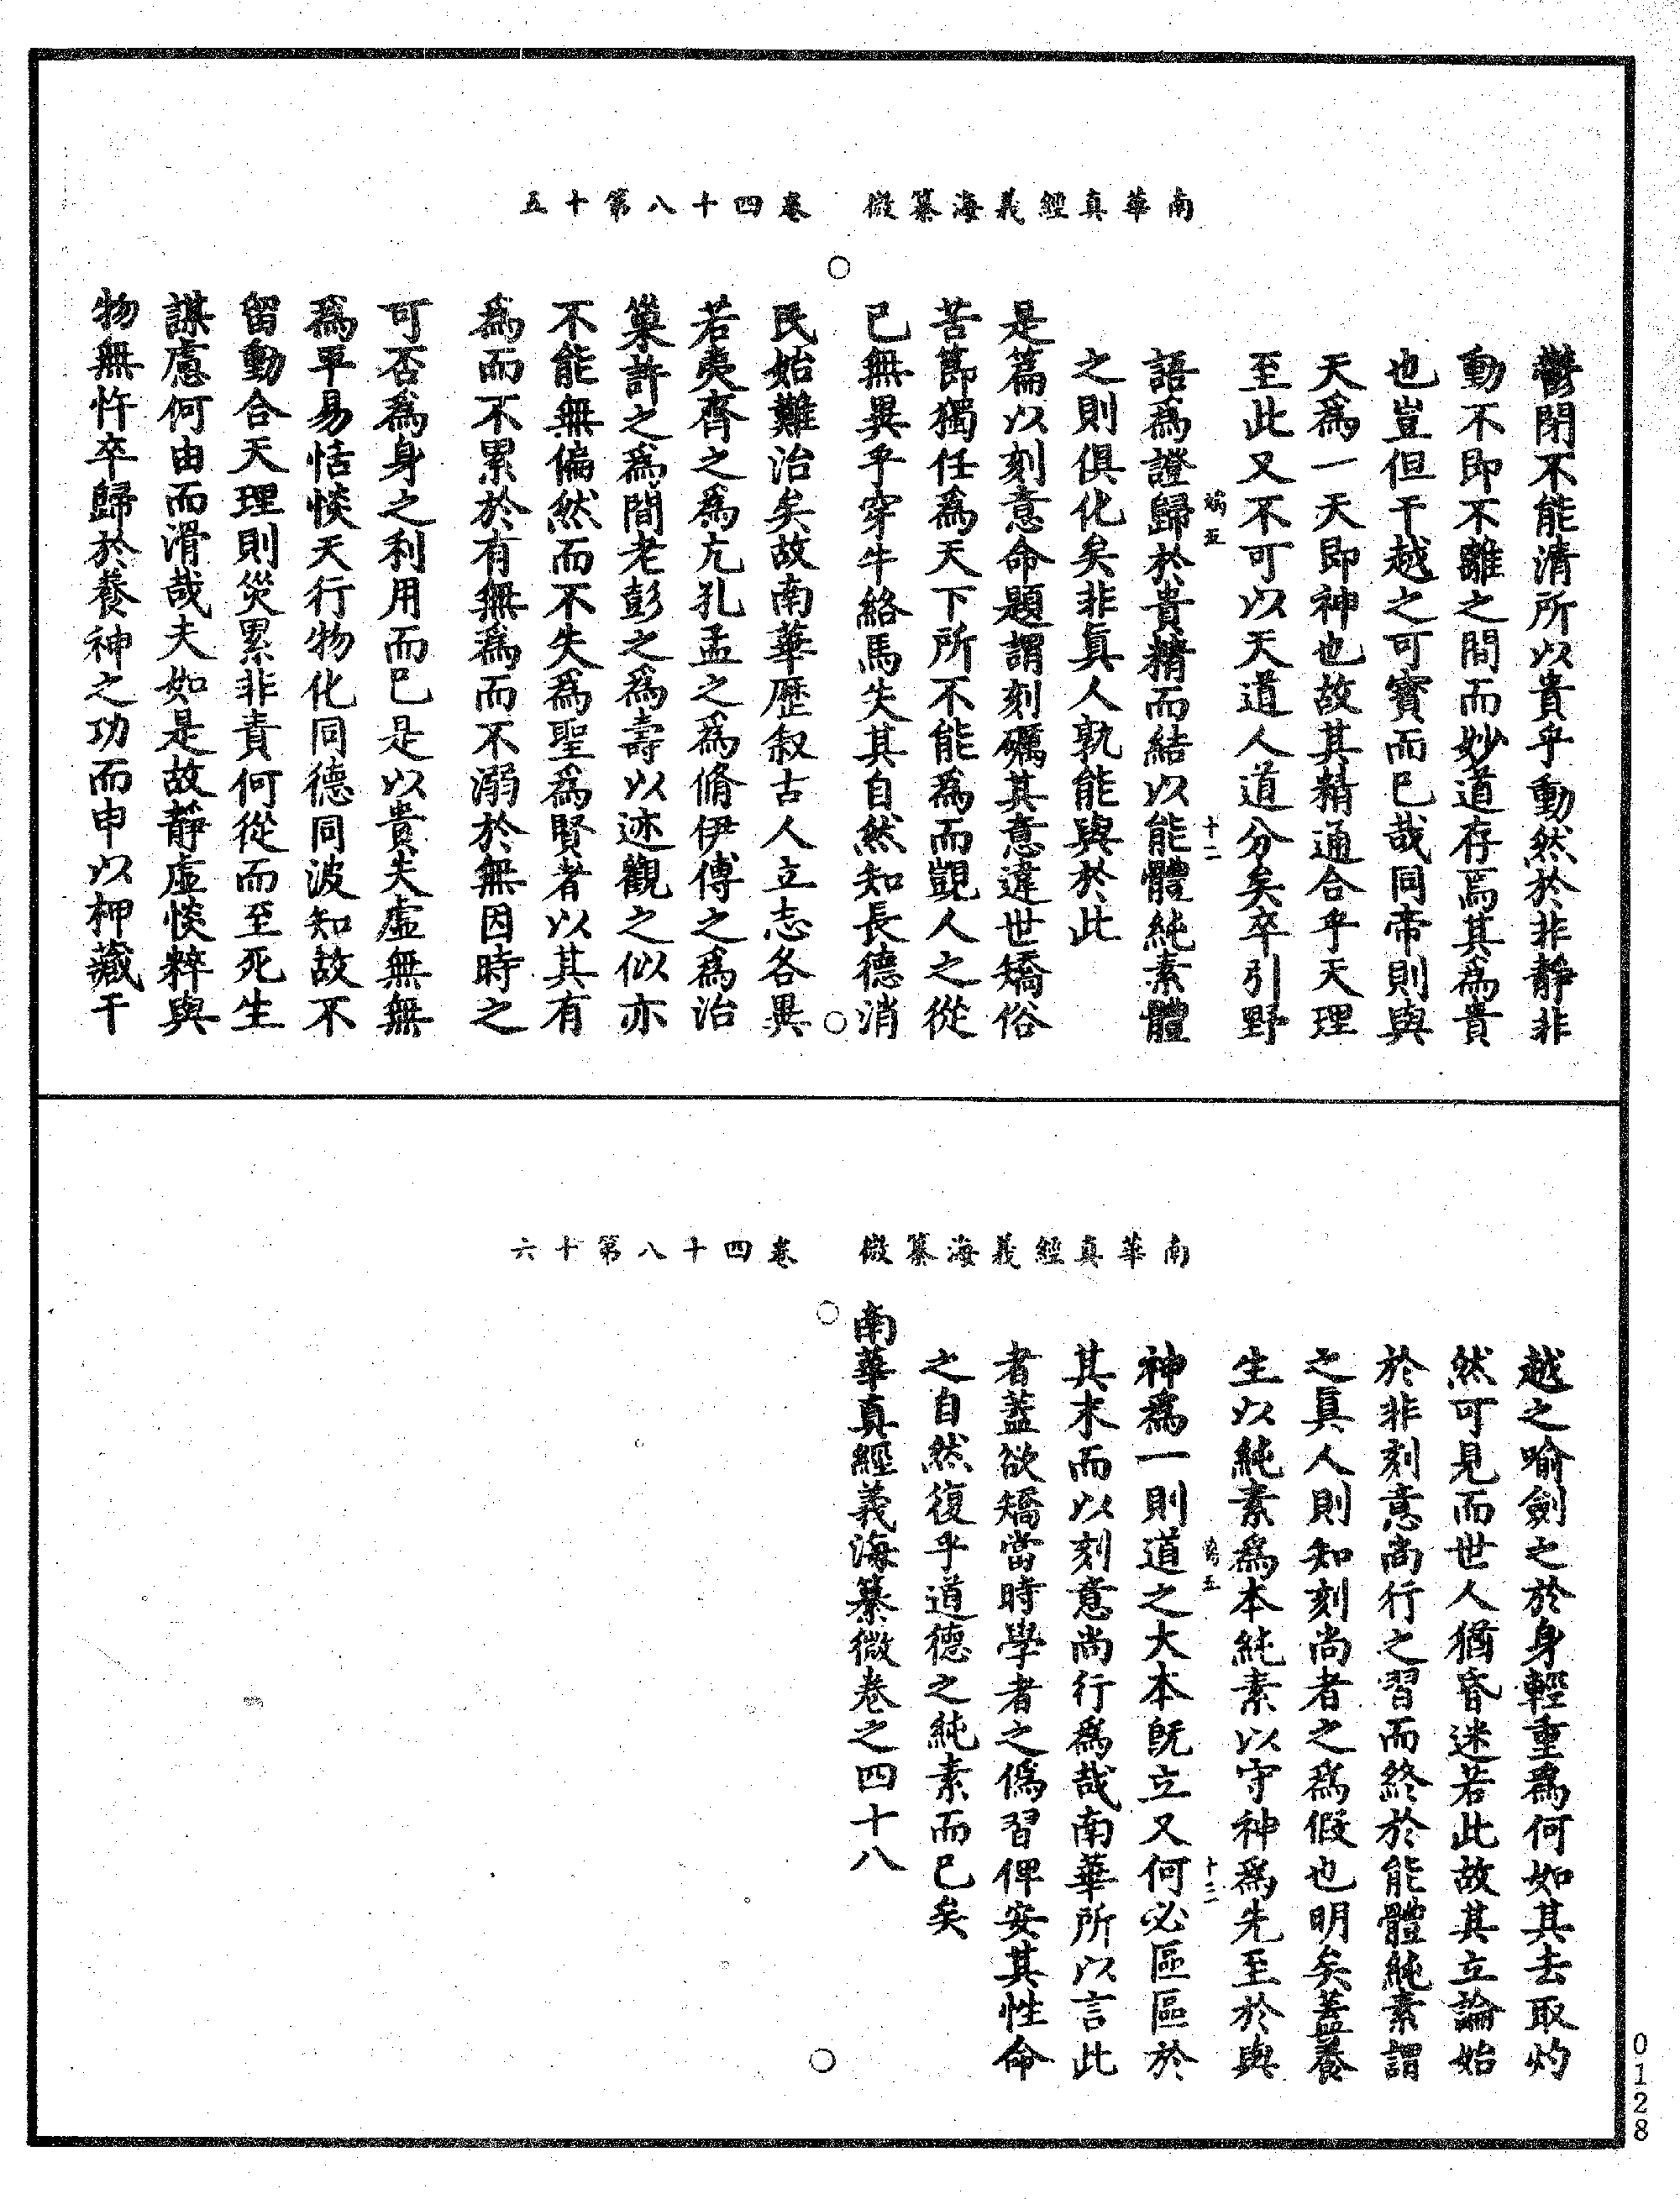 南華真經義海纂微　卷四十八第十五
鬱閉不能清所以貴乎動然於非靜非
動不即不離之間而妙道存焉其為貴
也豈但干越之可寳而已哉同帝則與
天為一天即神也故其精通合乎天理
至此又不可以天道人道分矣卒引野
十二
語為證歸於貴精而結以能體純素體
之則俱化矣非真人孰能與於此
是篇以刻意命題謂刻礪其意違世矯俗
苦節獨任為天下所不能為而覬人之從
已無異乎穿牛絡馬失其自然知長德消
民始難治矣故南華歷叙古人立志各異
若夷齊之為亢孔孟之為脩伊傅之為治
巢許之為間老彭之為壽以迹觀之似亦
不能無偏然而不失為聖為賢者以其有
為而不累於有無為而不溺於無因時之
可否為身之利用而已是以貴夫虛無無
為平易恬惔天行物化同德同波知故不
留動合天理則災累非責何從而至死生
謀慮何由而滑哉夫如是故靜虛惔粹與
物無忤卒歸於養神之功而申以柙藏干
南華真經義海纂微　卷四十八第十六
越之喻劍之於身輕重為何如其去取灼
然可見而世人猶昏迷若此故其立論始
於非刻意尚行之習而終於能體純素謂
之真人則知刻尚者之為假也明矣蓋養
生以純素為本純素以守神為先至於與
十三
神為一則道之大本既立又何必區區於
其末而以刻意尚行為哉南華所以言此
者蓋欲矯當時學者之偽習俾安其性命
之自然復乎道德之純素而已矣
南華真經義海纂微卷之四十八
0128